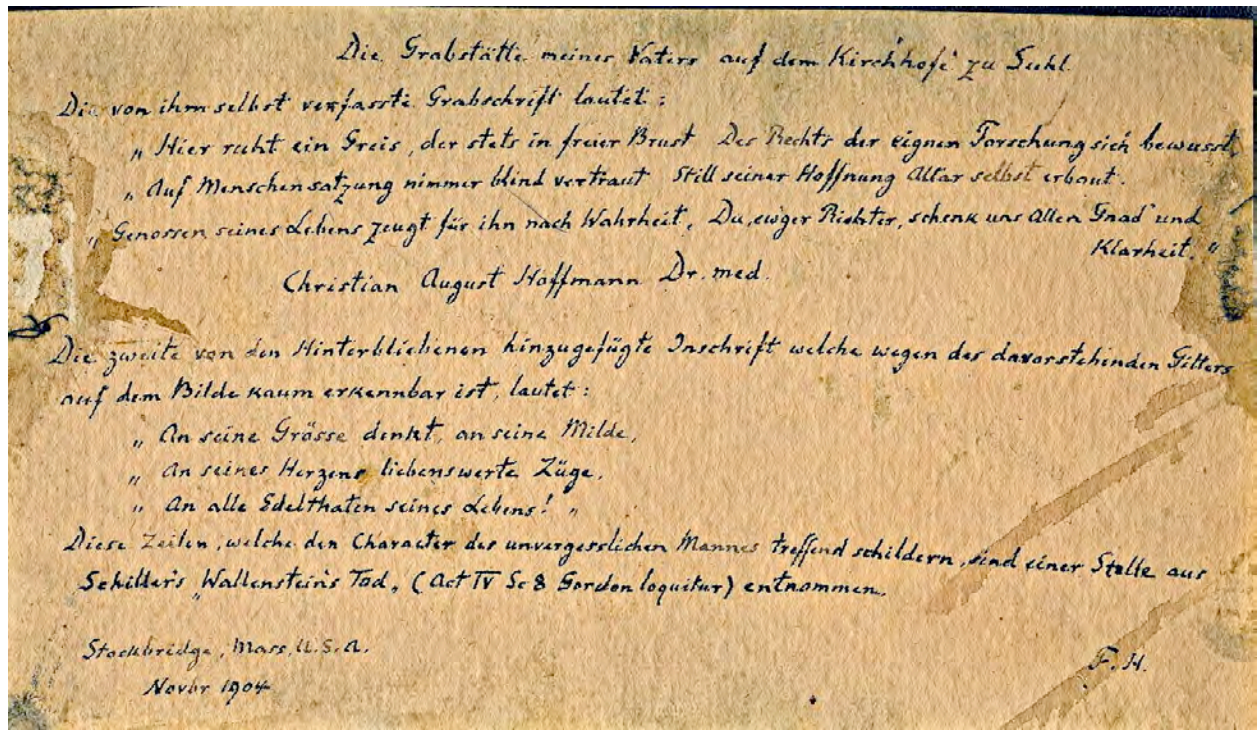 Die Grabstätte meines Vaters auf dem Kirchhofe zu Suhl.
Die von ihm selbst verfasste Grabschrift lautet:
„ Hier ruht ein Greis, der stets in freier Brust Des Rechts der eignen Forschung sich bewusst,
„ Auf Menschensatzung nimmer blind vertraut Still seiner Hoffnung Altar selbst erbaut.
„ Genossen seines Lebens zeugt für ihn nach Wahrheit, Du, ewger Richter, schenk uns Allen Gnad' und
Klarheit. "
Christian August Hoffmann Dr. med.
Die zweite von den Hinterbliebenen hinzugefügte Inschrift welche wegen des davorstehenden Gitters
auf dem Bilde kaum erkennbar ist, lautet:
„ An seine Grösse denkt, an seine Milde,
„ An seines Herzens liebenswerte Züge,
„ An alle Edelthaten seines Lebens! "
Diese Zeilen, welche den Character des unvergesslichen Mannes treffend schildern, sind einer Stelle aus
Schiller's „Wallenstein's Tod" (Act IV Sc 8 Gordon loquitur) entnommen.
Stockbridge, Mass, U.S.A.
Novbr 1904
F. H.